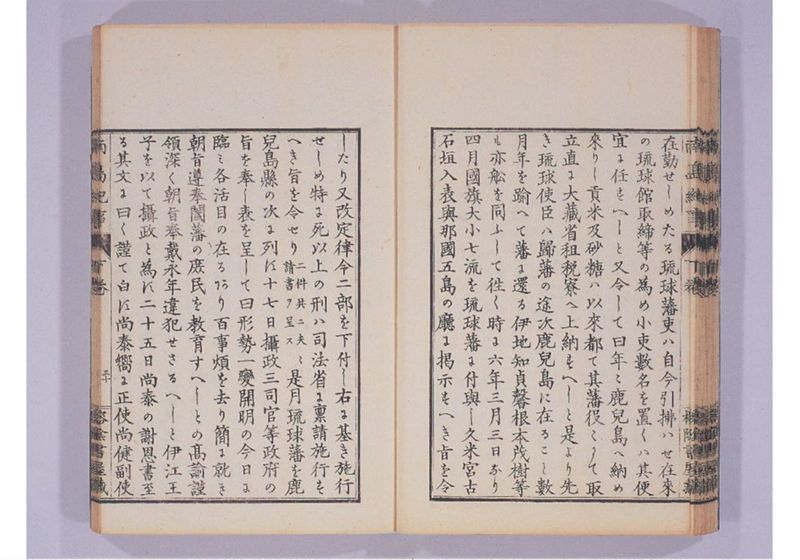 在勤せしめたる琉球藩吏ハ自今引拂ハせ在來
の琉球館取締等の為め小吏數名を置くハ其便
宜に任もへしと又令して曰年々鹿兒島へ納め
來りし貢米及砂糖ハ以來都て其藩役にて取
立直に大藏省租税寮へ上納もへしと是より先
き琉球使臣ハ歸藩の途次鹿兒島に在ること數
月年を踰へて藩に還る伊地知貞馨根本茂樹等
も亦舩を同ふして徃く時に六年三月三日なり
四月國旗大小七流を琉球藩に付與し久米宮古
石垣入表與那國五島の廳に掲示もへき旨を令
したり又改定律令二部を下付し右に基き施行
せしめ特に死以上の刑ハ司法省に稟請施行も
へき旨を令せり二件共ニ夫々請書ヲ呈ス是月琉球藩を鹿
兒島縣の次に列に十七日攝政三司官等政府の
旨を奉し表を呈して曰形勢一變開明の今日に
臨ミ各活目の在るあり百事煩を去り簡に就き
朝旨遵奉闔藩の庶民を教育すへしとの髙諭謹
領深く朝旨奉戴永年違犯せさるへしと伊江王
子を以て攝政と為に二十五日尚泰の謝恩書至
る其文に曰く謹て白に尚泰嚮に正使尚健副使